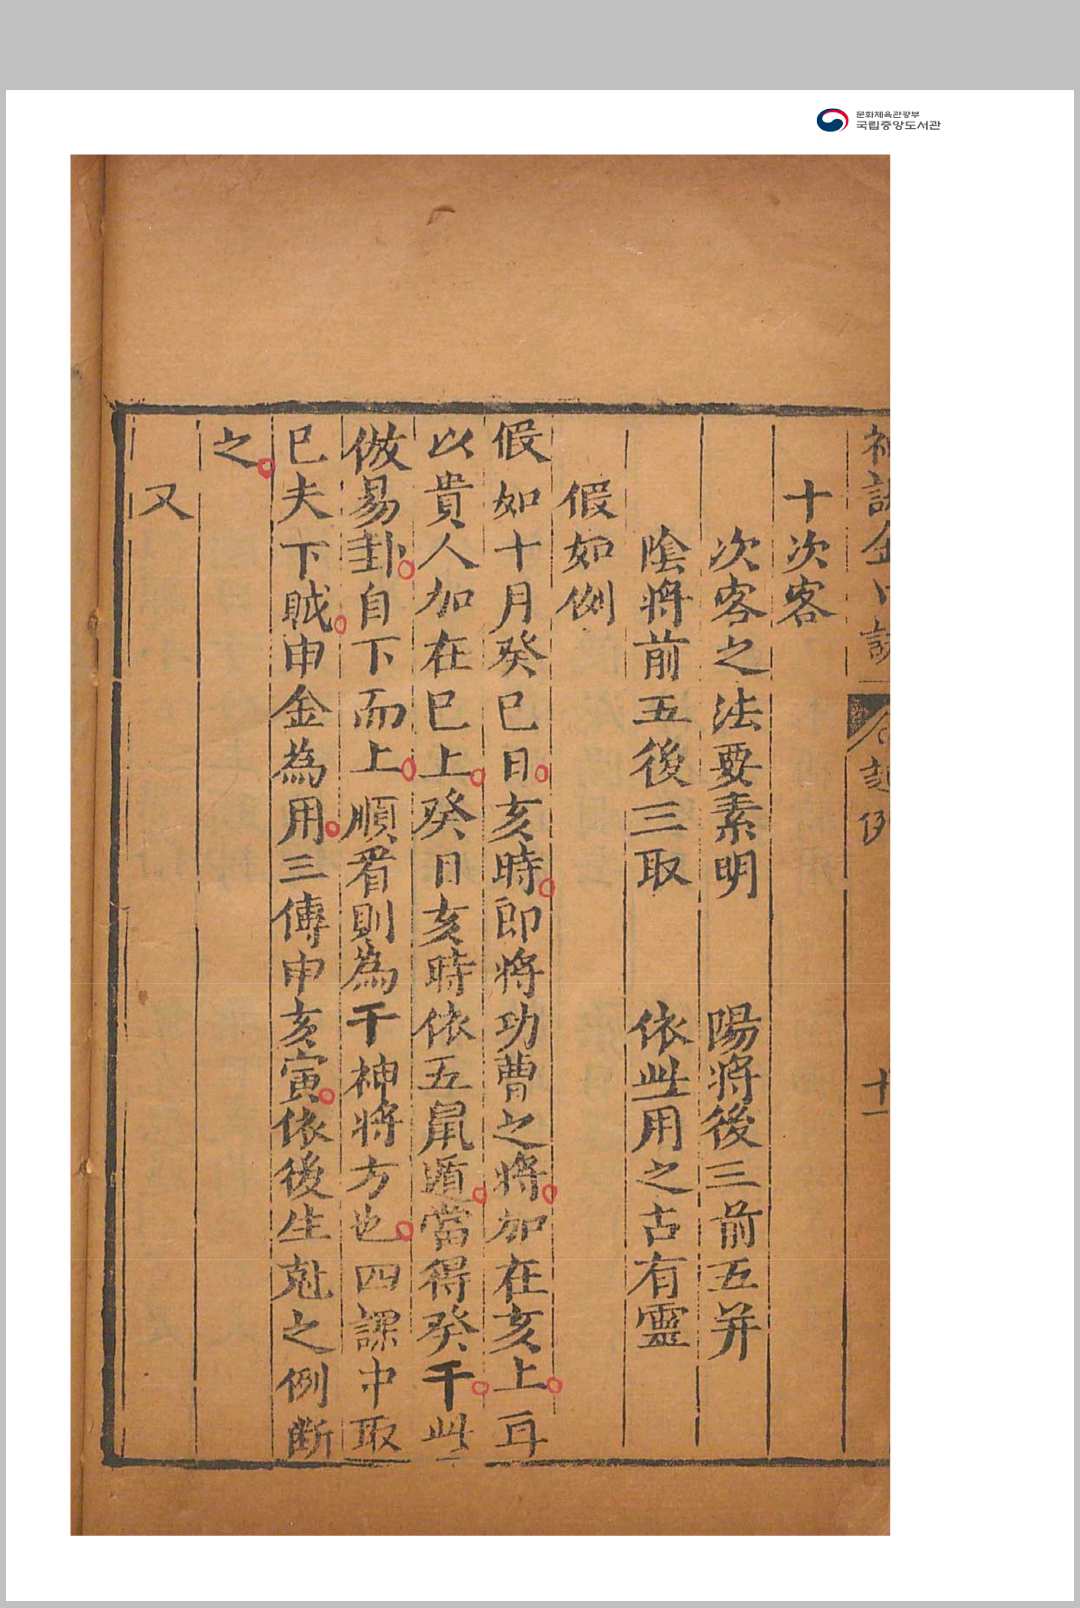 문화체육관광부
국립중앙도서관
十次客
次客之法要素明 陽將後三前五并
陰將前五後三取 依此用之古有靈
假如例
假如十月癸巳日亥時即將功曹之將加在亥上耳
以貴人加在巳上癸日亥時依五鼠遁當得癸干此
倣易卦自下而上順看則為干神將方也四課中取
巳夫下賊申金為用三傳申亥寅依後生剋之例斷
之
又